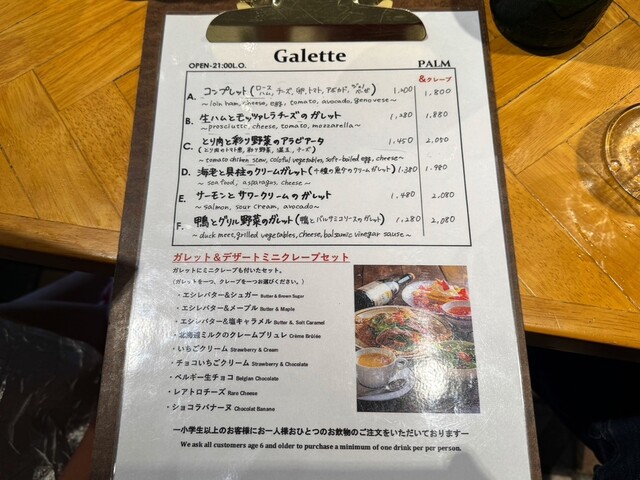 Galette
OPEN-21:00L.O.
PALM
&クレープ
A. コンプレット(ロースハム, チーズ, 卵, トマト, アボカド, 1,800
~loin ham, cheese, egg, tomato, avocado, genovese~
B. 生ハムとモッツァレラチーズのガレット 1,280 1,880
~prosciutto, cheese, tomato, mozzarella~
C. とり肉と彩り野菜のアラビアータ 1,450 2,050
(とり肉のトマト煮, 彩り野菜, 温玉, チーズ)
~tomato chicken stew, colorful vegetables, soft-boiled egg, cheese~
D. 海老と のクリームガレット( のクリームガレット) 1,380 1,980
~sea food, asparagus, cheese~
E. サーモンとサワークリームのガレット 1,480 2,080
~salmon, sour cream, avocado~
F. 鴨とグリル野菜のガレット(鴨とバルサミコソースのガレット) 1,280 2,080
~duck meet, grilled vegetables, cheese, balsamic vinegar sause~
ガレット&デザートミニクレープセット
ガレットにミニクレープも付いたセット。
(ガレットを一つ、クレープを一つお選びください。)
・エシレバター&シュガー Butter & Brown Sugar
・エシレバター&メープル Butter & Maple
・エシレバター&塩キャラメル Butter &. Salt Caramel
・北海道ミルクのクレームブリュレ Crème Brûlée
・いちごクリーム Strawberry & Cream
・チョコいちごクリーム Strawberry & Chocolate
・ベルギー生チョコ Belgian Chocolate
・レアトロチーズ Rare Cheese
・ショコラバナーヌ Chocolat Banane
ー小学生以上のお客様にお一人様おひとつのお飲物のご注文をいただいておりますー
We ask all customers age 6 and older to purchase a minimum of one drink per per person.